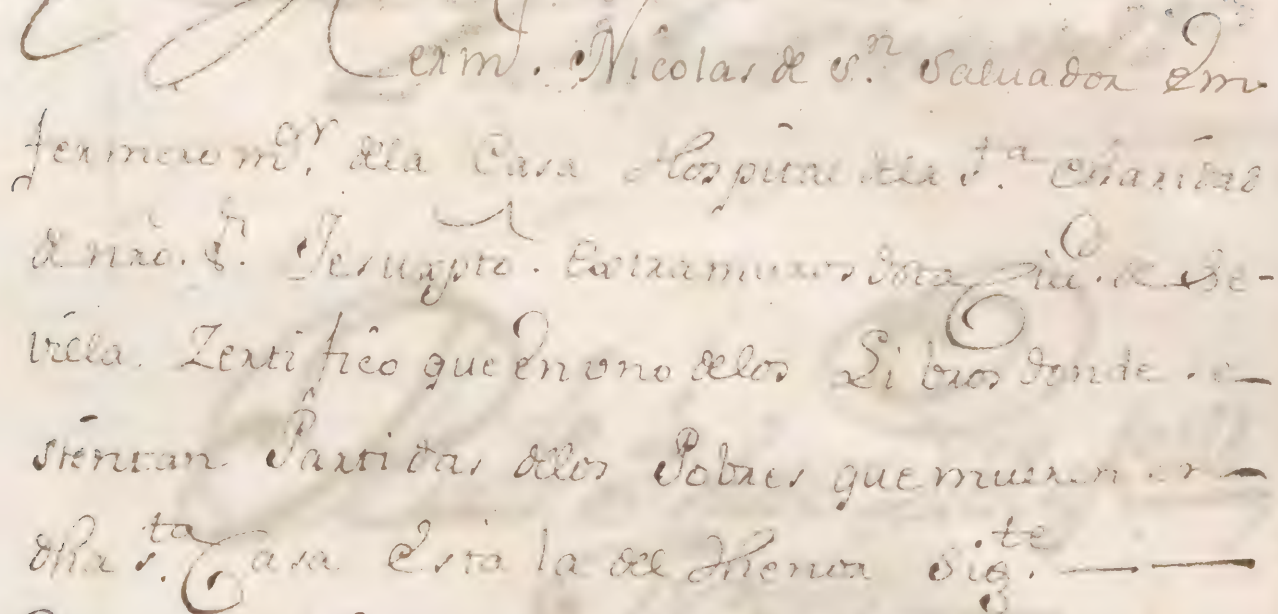 Herm.º Nicolas de S.n Saluador Em
fermero m.or dela Casa Hospital dela S.ta Charidad
de nro. S.r Jesuxpto. Extramuros desta Ciu.d de Se-
villa. Zertifico que en vno delos Libros donde se
sientan Partidas delos Pobres que mueren en
dha S.ta Casa Esta la del thenor Sig.te